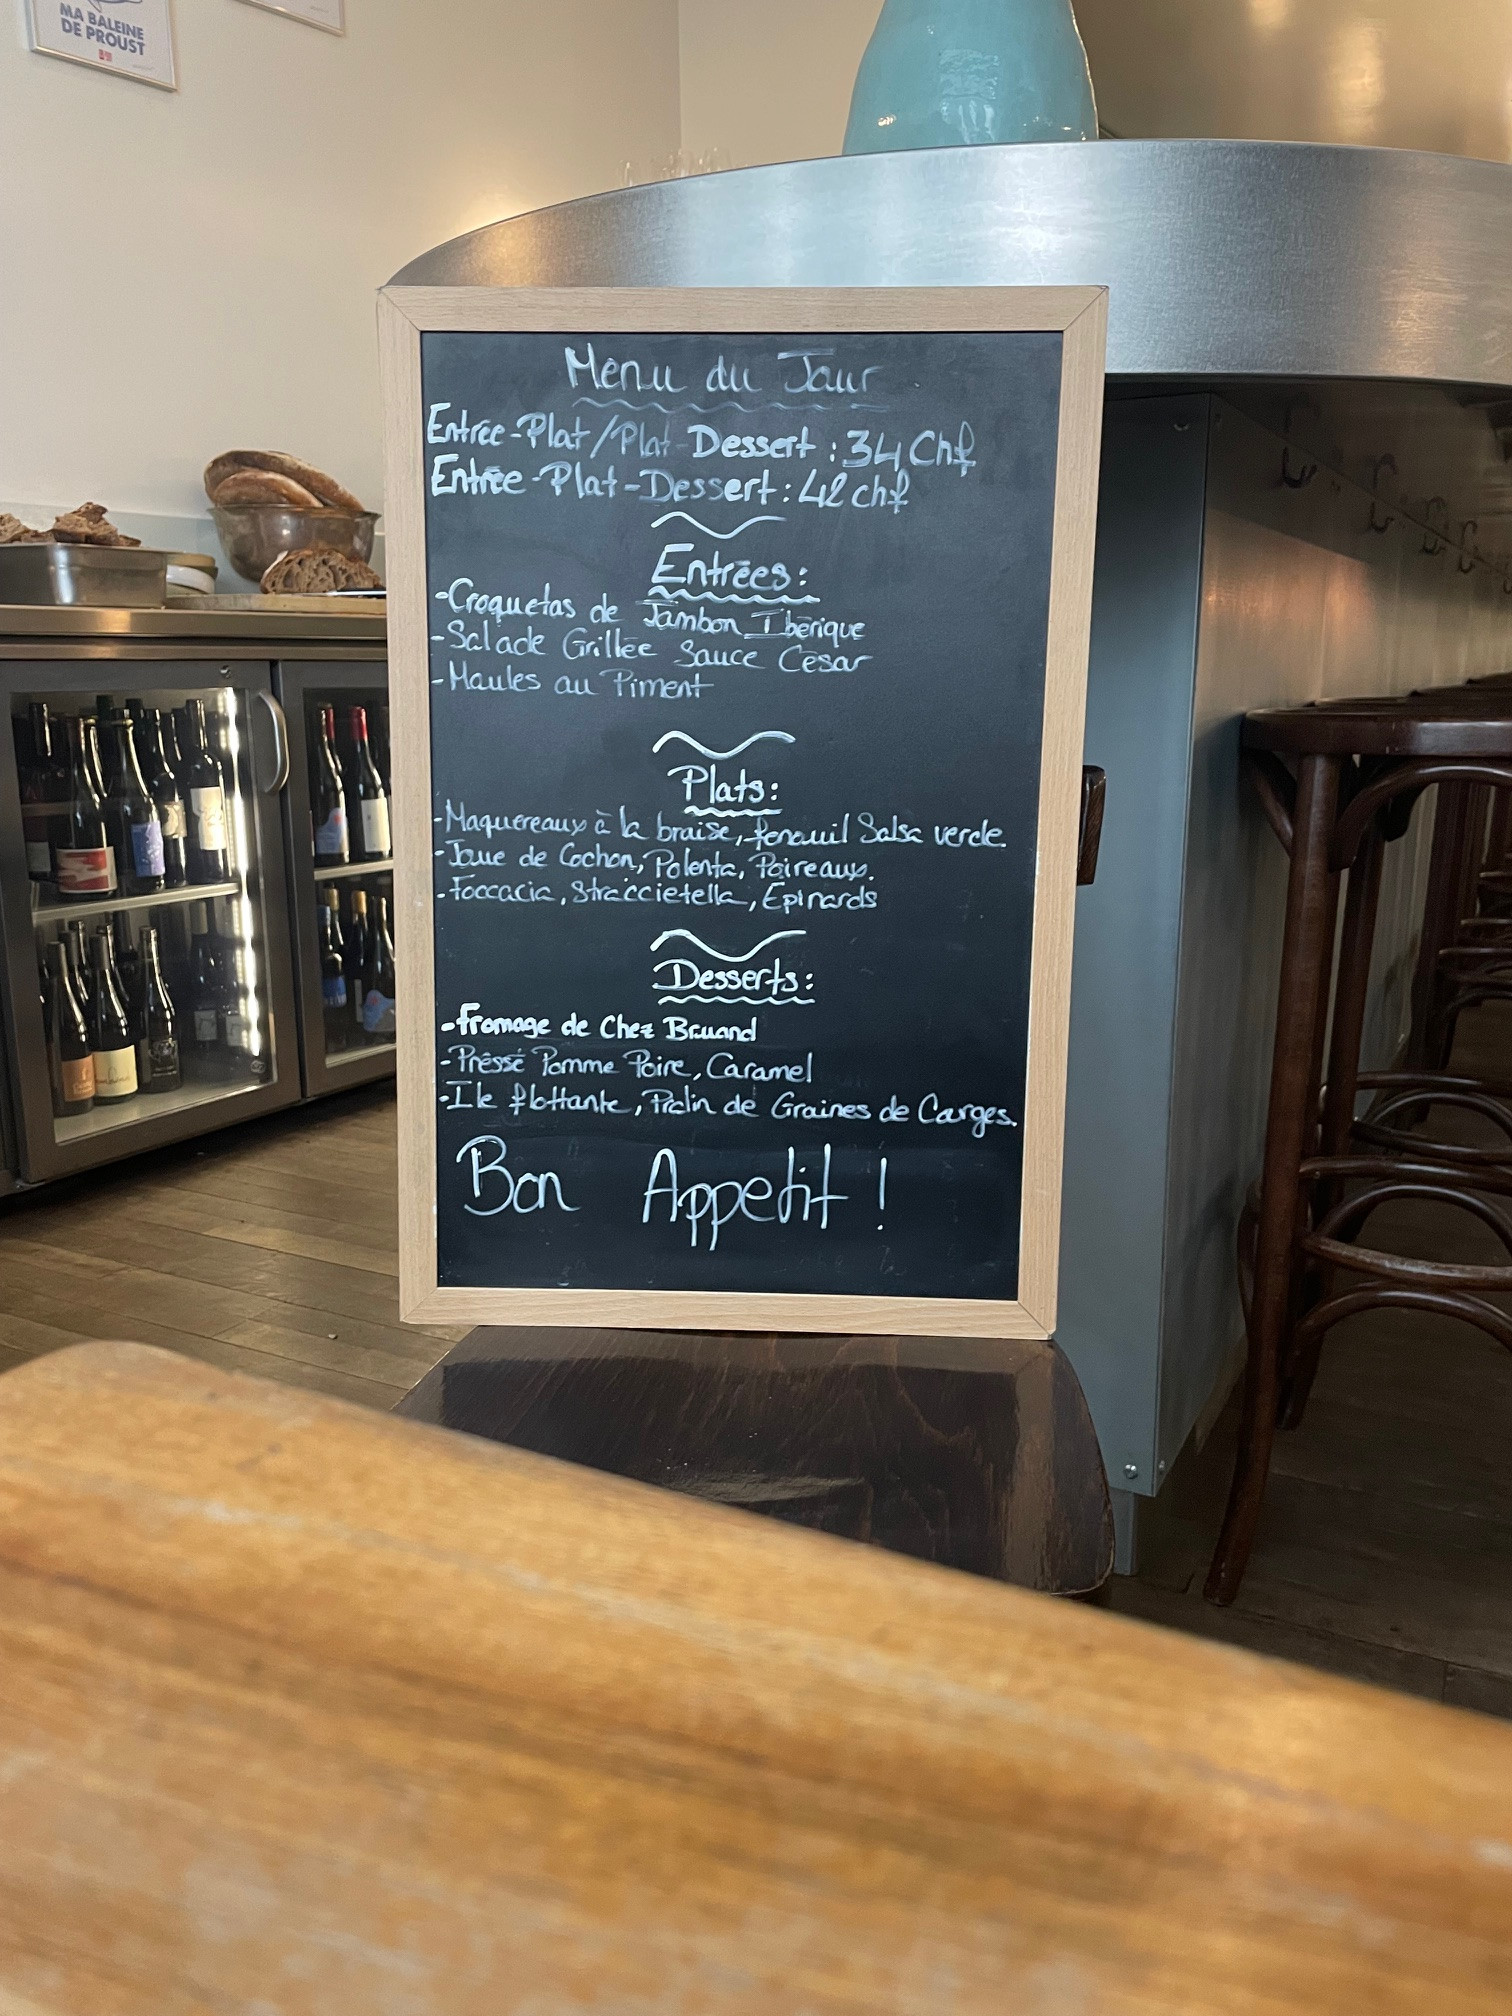 MA BALEINE
DE PROUST
Menu du Jour
Entrée-Plat/Plat-Dessert : 34 Chf
Entrée-Plat-Dessert : 42 chf
Entrées :
-Croquetas de Jambon Ibérique
-Salade Grillée Sauce César
-Moules au Piment
Plats :
-Maquereaux à la braise, fenouil Salsa verde.
-Joue de Cochon, Polenta, Poireaux.
-Foccacia, Straccietella, Epinards
Desserts :
-Fromage de Chez Bruand
-Préssé Pomme Poire, Caramel
-Ile flottante, Pralin de Graines de Courges.
Bon Appetit !